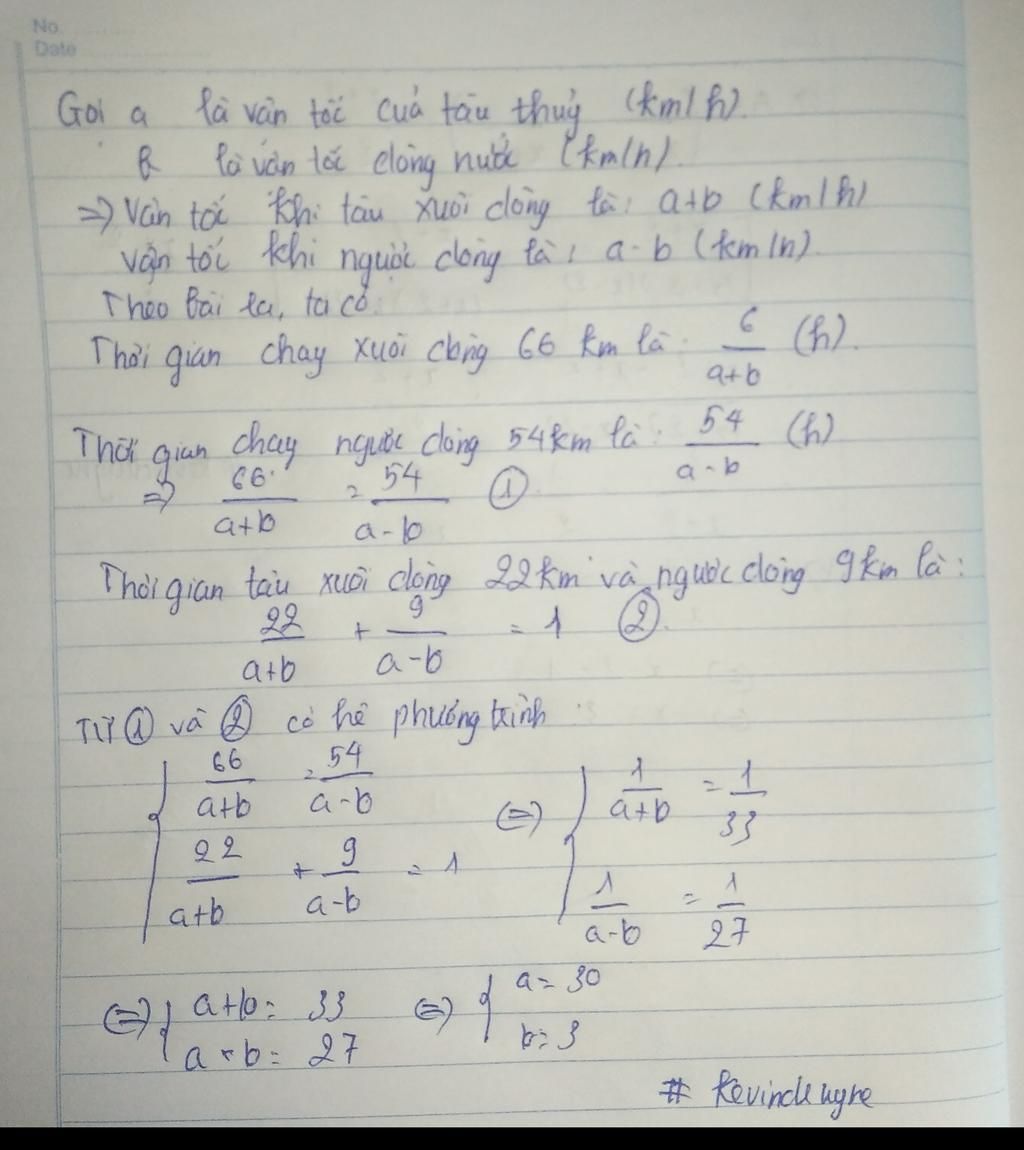 No.
Date
Gọi a là vận tốc của tàu thuỷ (km/h).
b là vận tốc dòng nước (km/h).
=> Vận tốc khi tàu xuôi dòng là: a+b (km/h)
vận tốc khi ngược dòng là: a-b (km/h).
Theo bài ra, ta có.
Thời gian chạy xuôi dòng 66 km là: 6/(a+b) (h).
Thời gian chạy ngược dòng 54km là: 54/(a-b) (h)
=> 66/(a+b) = 54/(a-b) ①
Thời gian tàu xuôi dòng 22km và ngược dòng 9km là:
22/(a+b) + 9/(a-b) = 1 ②.
Từ ① và ② có hệ phương trình:
{ 66/(a+b) = 54/(a-b) <=> { 1/(a+b) = 1/33
22/(a+b) + 9/(a-b) = 1 1/(a-b) = 1/27
<=> { a+b = 33 <=> { a = 30
a-b = 27 b = 3
#